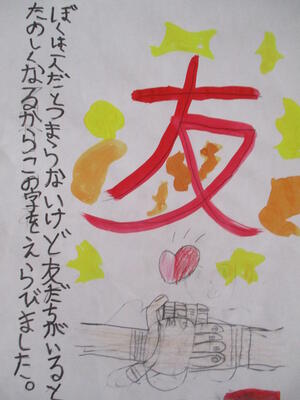 友
ぼくは一人だとつまらないけど友だちがいると
たのしくなるからこの字をえらびました。